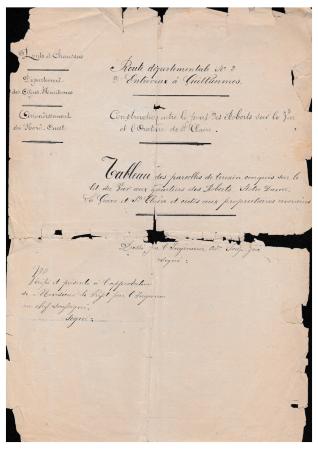 Ponts et Chaussées
Département
des Alpes Maritimes
Arrondissement
du Nord-Ouest
Route départementale No 2
D'Entrevaux à Guillaumes
Construction entre le pont des Roberts sur le Var
et l'Oratoire de Ste Claire
Tableau des parcelles de terrain conquises sur le
lit du Var aux quartiers des Roberts Notre Dame
et Ste Claire et cédés aux propriétaires riverains
Dressé par l'Ingénieur
Signé
Vu
Vérifié et présenté à l'approbation
de Monsieur le Préfet par l'Ingénieur
en chef soussigné
Signé: